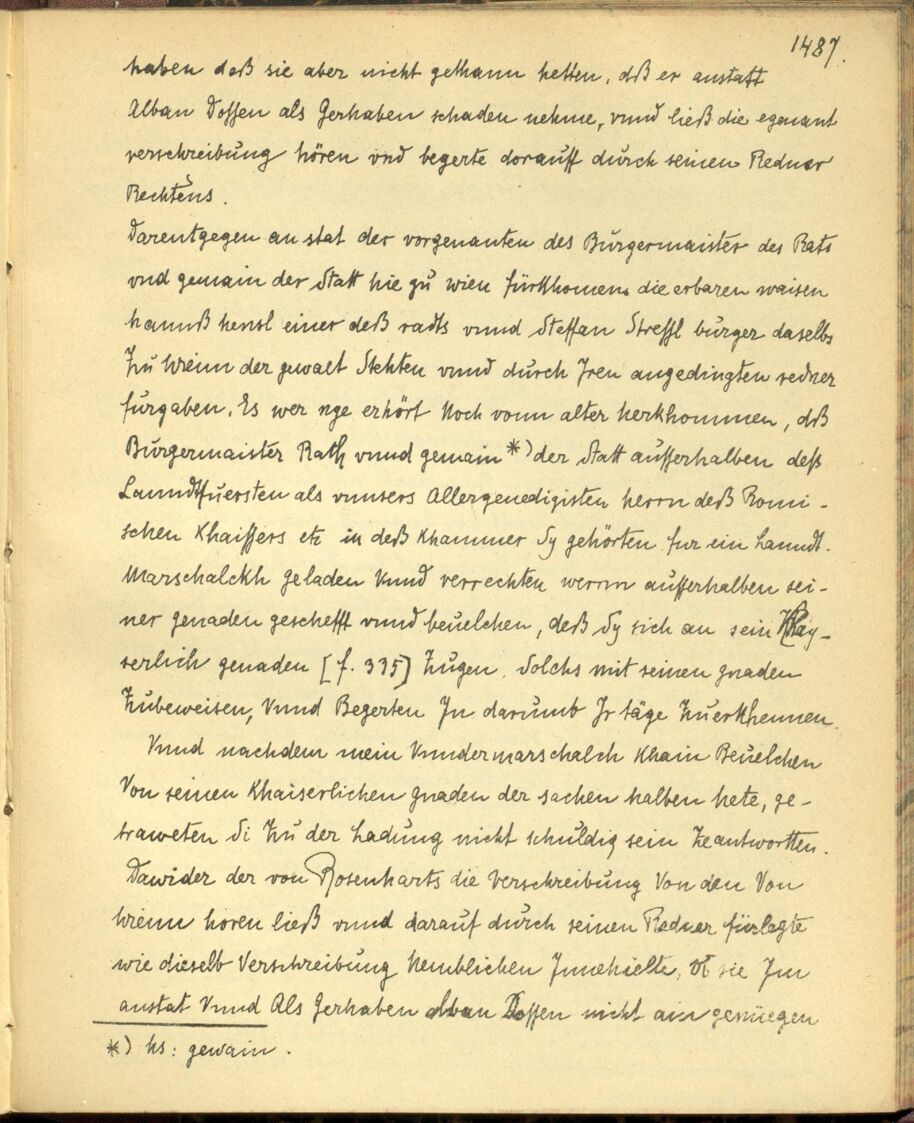 1487.
haben deß sie aber nicht gethann hetten, dß er anstatt
Alban Dossen als Gerhaben schaden nehme, vnnd ließ die egenant
verschreibung hören vnd begerte dorauff durch seinen Redner
Rechtens.
Darentgegen an stat der vorgenanten des Burgermaister des Rats
vnd gemain der Statt hie zu wien fürkhomen die erbaren waisen
hannß hensl einer deß radts vnnd Steffan Stressl burger daselbs
Zu Wrienn der gewalt Stehten vnnd durch Jren angedingten redner
furgaben. Es wer nye erhört Noch vonn alter herkhommen, dß
Burgermaister Rath vnnd gemain *) der Statt ausserhalben deß
Lanndtfuersten als vnnsers Allergenedigisten herrn deß Romi-
schen Khaissers etc in deß Khammer Sy gehörten fur ein Lanndt.
Marschalckh geladen Vnnd verrechten werrn ausserhalben sei-
ner genaden geschefft vnnd beuelchen, deß Sy sich an sein Khay-
serlich genaden [f. 335] Zugen. Solchs mit seinen gnaden
Zubeweisen, Vnnd Begerten Jn darumb Jr täge Zuerkhennen.
Vnnd nachdem mein Vnndermarschalch Khain Beuelchen
Von seinen Khaiserlichen gnaden der sachen halben hete, ge-
traweten Si Zu der Ladung nicht schuldig sein Zeantwortten.
Dawider der von Rosenharts die Verschreibung Von den Von
Wrienn horen ließ vnnd darauf durch seinen Redner fürlegte
wie dieselb Verschreibung Nemblichen Jnnehielte, Ob sie Jm
anstat Vnnd Als Gerhaben Alban Dossen nicht ain genüegen
*) hs: gewain.